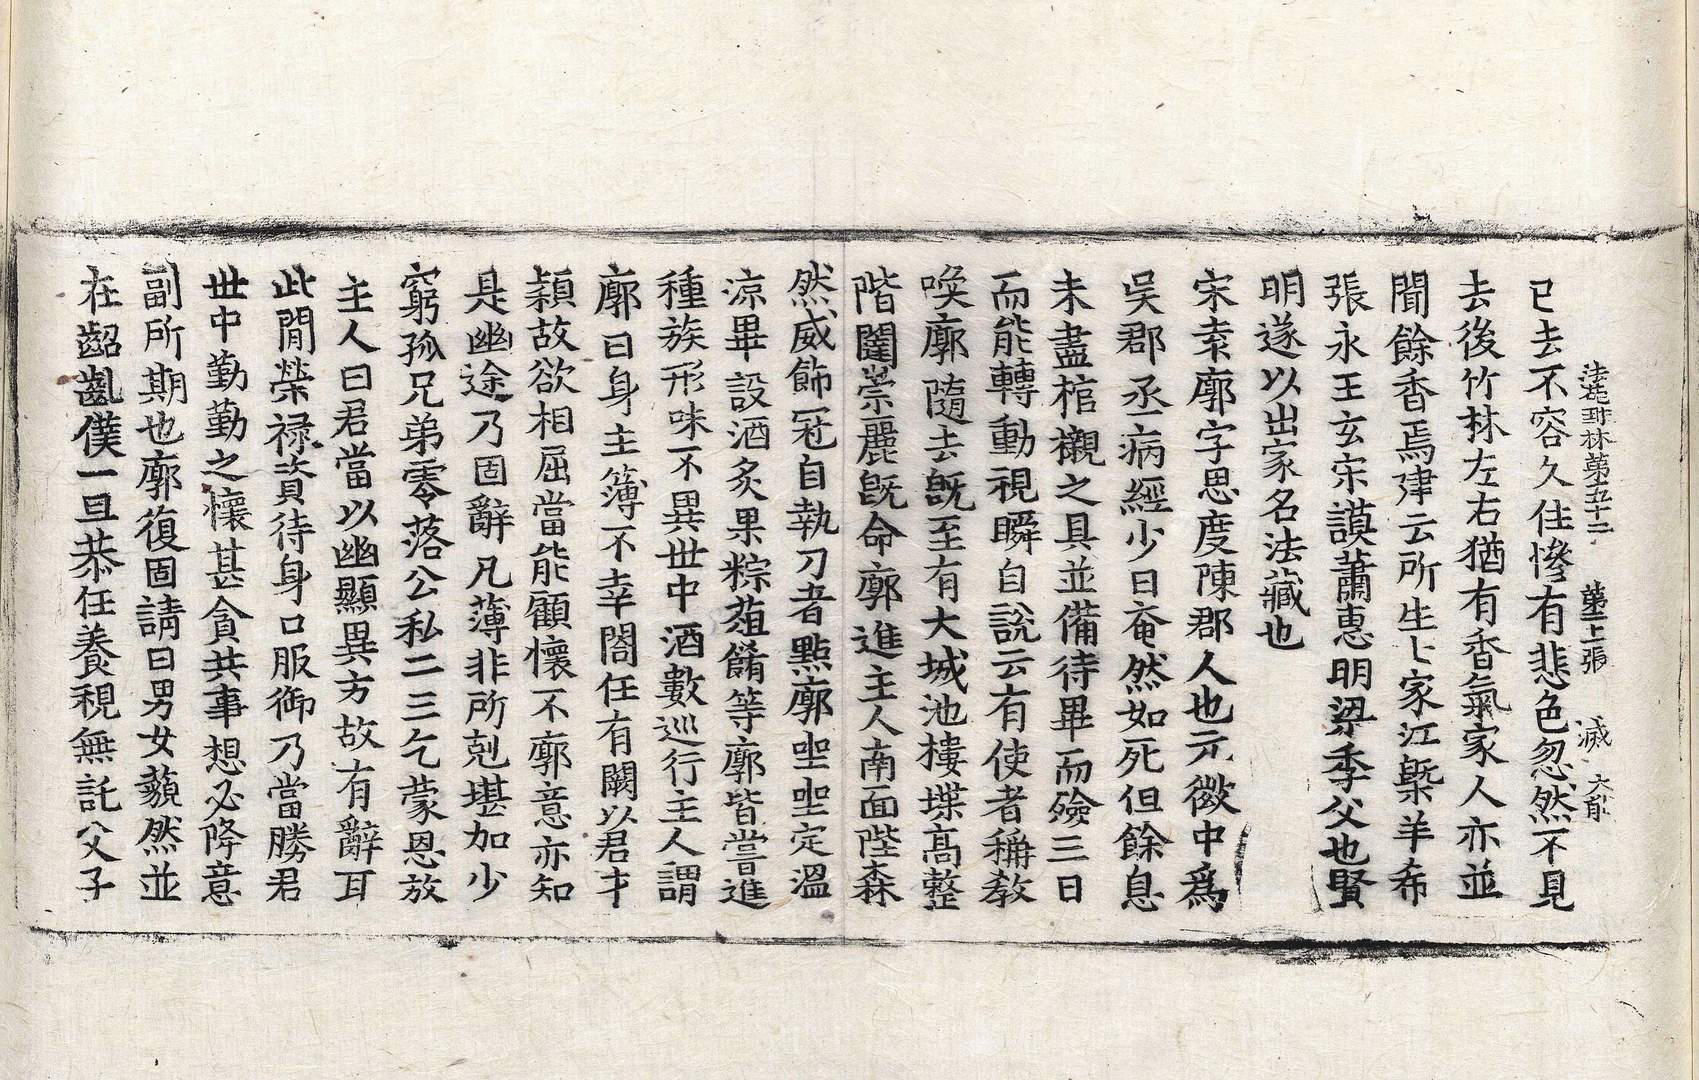 法苑珠林第五十二 第十七張 㓕 大有
已去不容久住慘有悲色忽然不見
去後竹林左右猶有香氣家人亦並
聞餘香焉建云所生卜家江槩羊希
張永王玄宋謨蕭惠明梁季父也賢
明遂以出家名法藏也
宋索廓字思度陳郡人也元徽中爲
吳郡丞病經少日奄然如死但餘息
未盡棺櫬之具並備待畢而殮三日
而能轉動視瞬自說云有使者稱教
喚廓隨去旣至有大城池樓堞高整
階闥崇麗旣命廓進主人南面陛森
然威飾冠自執刀者點廓坐坐定溫
涼畢設酒炙果粽葅餚等廓皆嘗進
種族形味不異世中酒數巡行主人謂
廓曰身主簿不幸閤任有闕以君才
穎故欲相屈當能顧懷不廓意亦知
是幽途乃固辭凡薄非所剋堪加少
窮孤兄弟零落公私二三乞蒙恩放
主人曰君當以幽顯異方故有辭耳
此閒榮祿資待身口服御乃當勝君
世中勤勤之懷甚貪共事想必降意
副所期也廓復固請曰男女藐然並
在齠齓僕一旦恭任養視無託父子